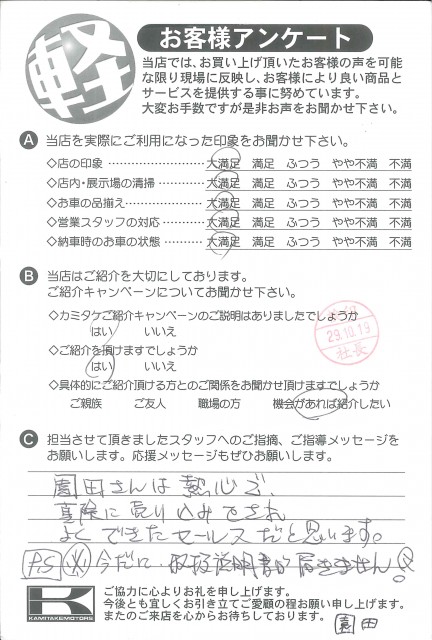 軽
お客様アンケート
当店では、お買い上げ頂いたお客様の声を可能
な限り現場に反映し、お客様により良い商品と
サービスを提供する事に努めています。
大変お手数ですが是非お声をお聞かせ下さい。
A 当店を実際にご利用になった印象をお聞かせ下さい。
◇店の印象 …………………… 大満足 満足 ふつう やや不満 不満
◇店内・展示場の清掃………… 大満足 満足 ふつう やや不満 不満
◇お車の品揃え………………… 大満足 満足 ふつう やや不満 不満
◇営業スタッフの対応………… 大満足 満足 ふつう やや不満 不満
◇納車時のお車の状態………… 大満足 満足 ふつう やや不満 不満
B 当店はご紹介を大切にしてあります。
ご紹介キャンペーンについてお聞かせ下さい。
◇カミタケご紹介キャンペーンのご説明はありましたでしょうか
はい いいえ
◇ご紹介を頂けますでしょうか
はい いいえ
29.10.19
社長
◇具体的にご紹介頂ける方とのご関係をお聞かせ頂けますでしょうか
ご親族 ご友人 職場の方 機会があれば紹介したい
C 担当させて頂きましたスタッフへのご指摘、ご指導メッセージを
お願いします。応援メッセージもぜひお願いします。
園田さんは熱心で、
真険に売り込みをされ
よくできたセールスだと思います。
P.S ※ 今だに、取扱説明書が届きません
ご協力に心よりお礼を申し上げます。
今後とも宜しくお引き立てご愛顧の程お願い申し上げます。
またのご来店を心からお待ちしております。
KAMITAKEMOTORS
園田